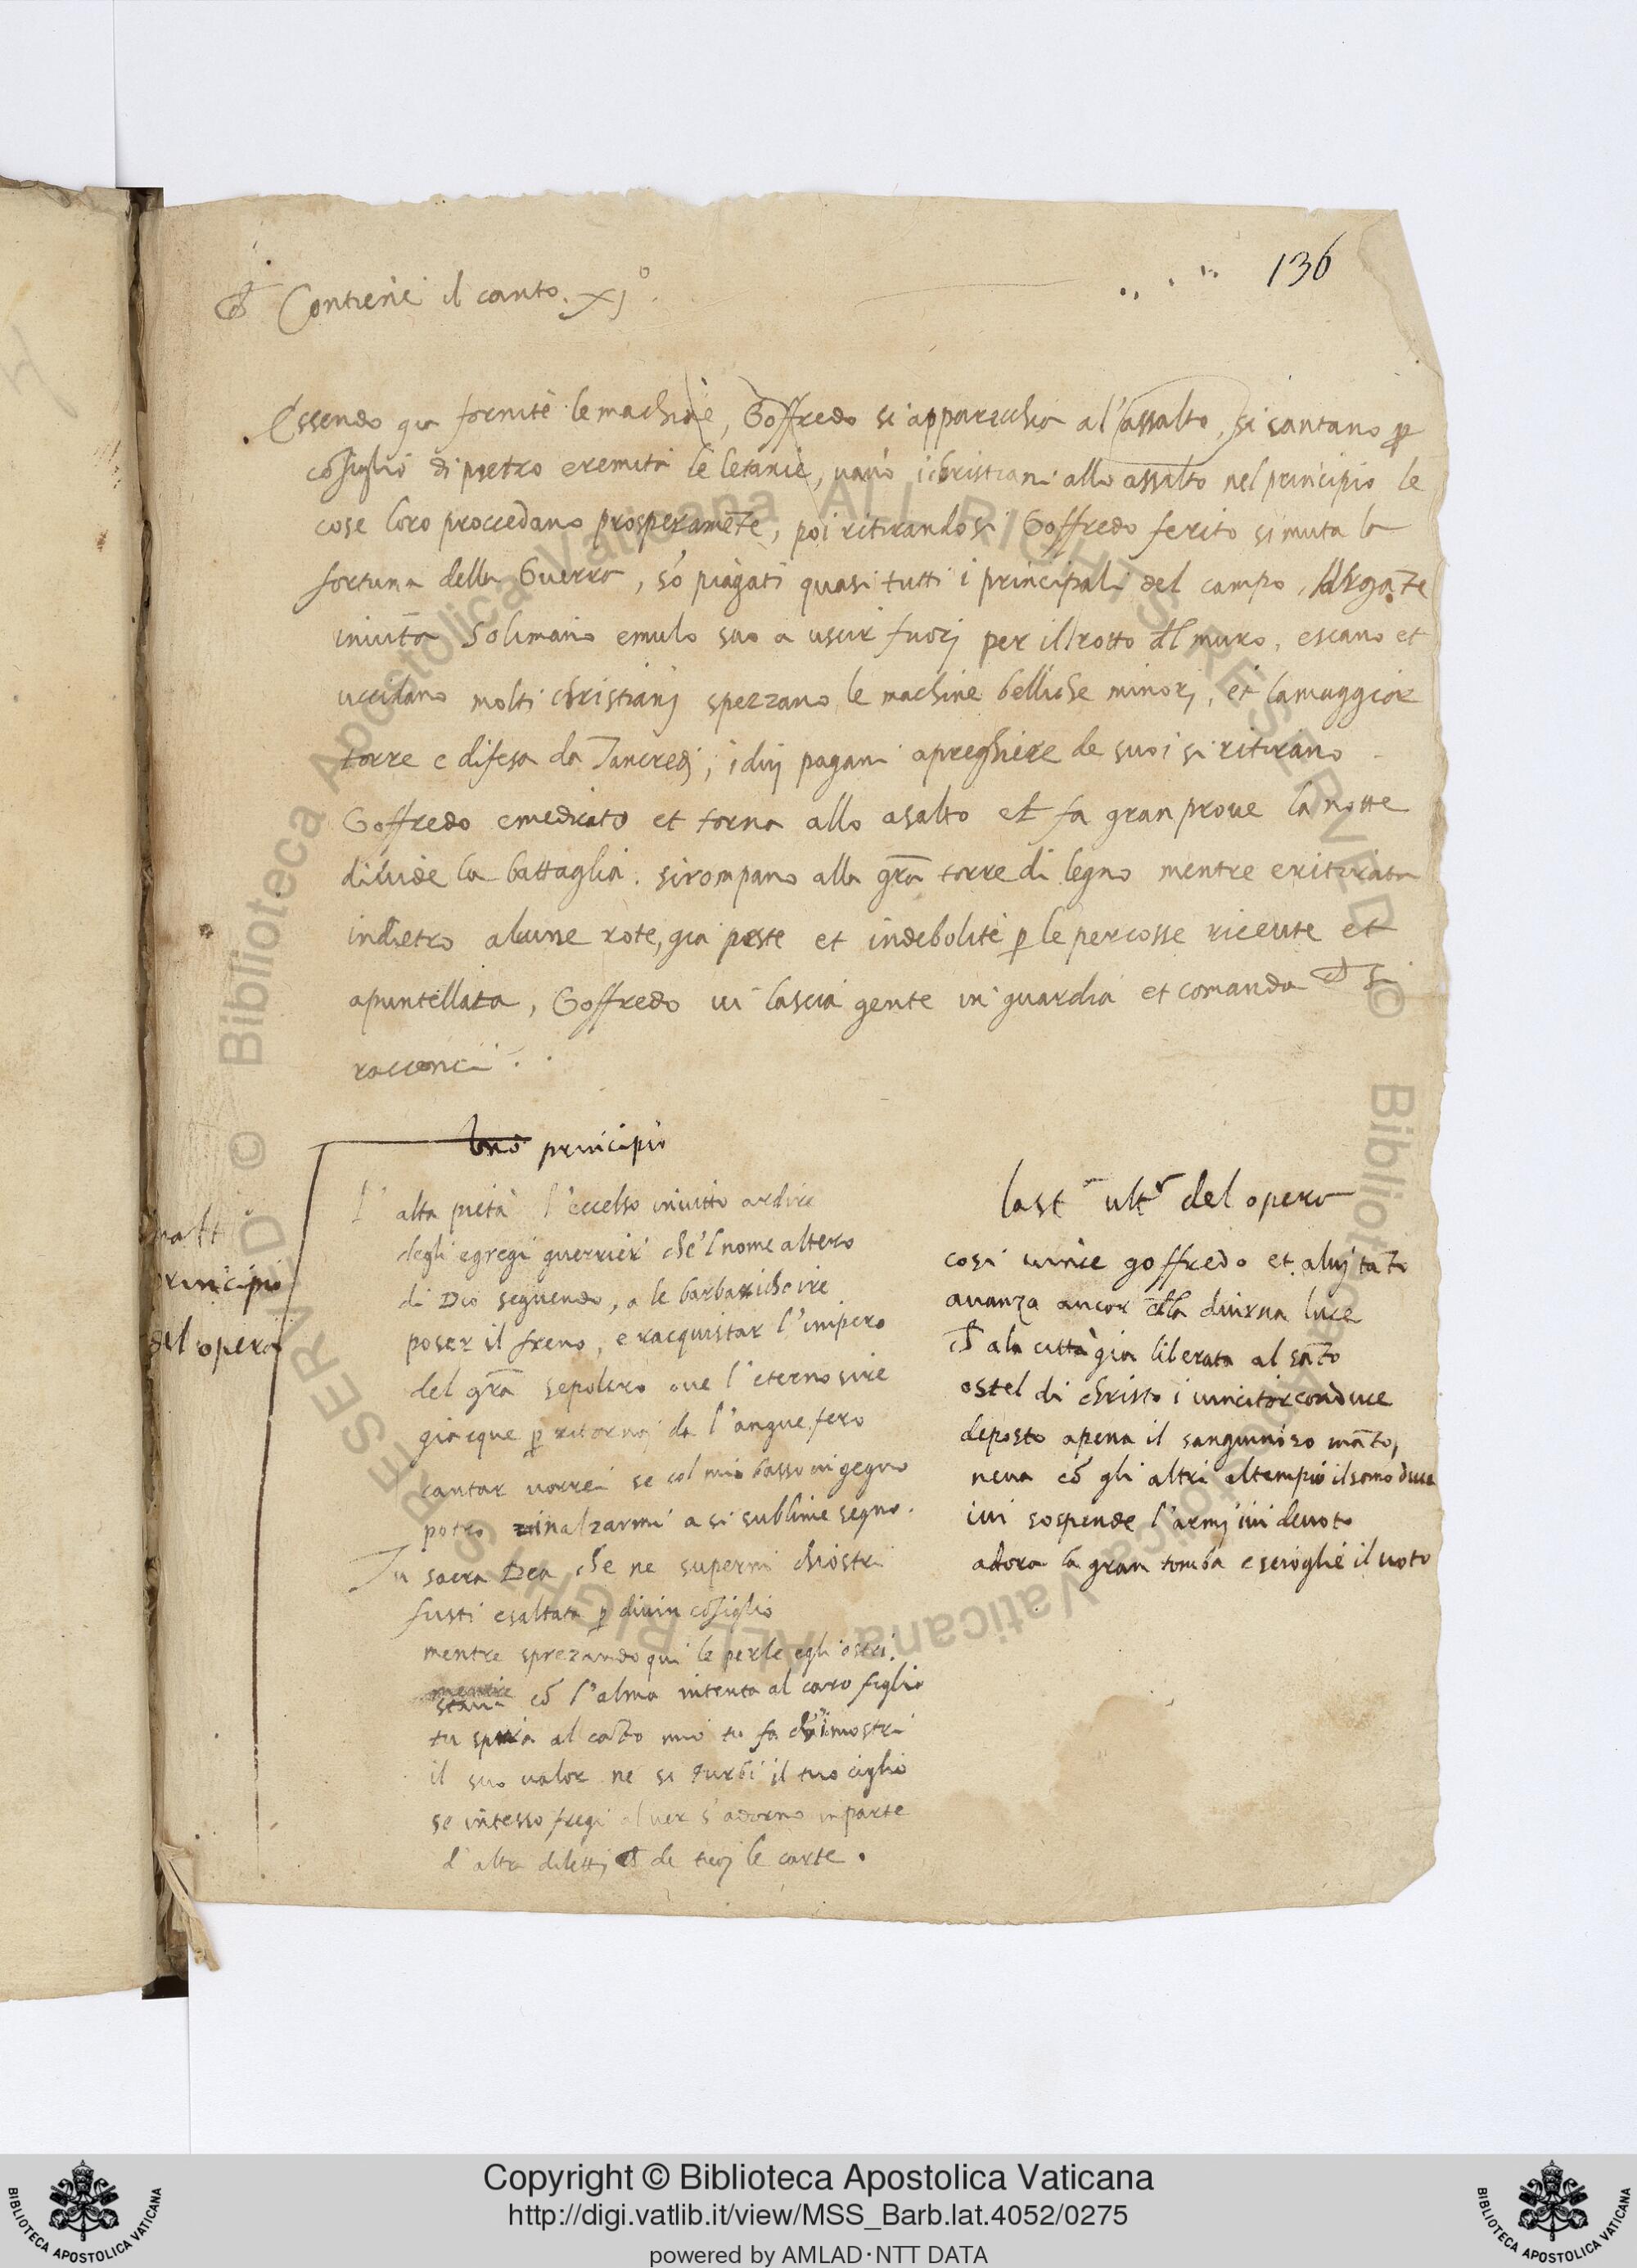 136
Contiene il canto. xj°.
Essendo gia fornite le machine, Goffredo si apparecchia al'assalto, si cantano p
cõsiglio di pietro eremita le letanie, vano i christiani allo assalto nel principio le
cose loro procedano prosperamẽte, poi ritirandosi Goffredo ferito si muta la
fortuna della Guerra, sõ piagati quasi tutti i principali del campo, Argãte
inuita Solimano emulo suo a uscir fuorj per il rotto dl muro, escano et
uccidano molti christianj spezzano le machine belliche minorj, et la maggior
torre e difesa da Tancredj, i duj pagani a preghiere de suoi si ritirano
Goffredo e medicato et torna allo asalto et fa gran proue la notte
diuide la battaglia. si rompano alla grã torre di legno mentre e ritirata
indietro alcune rote, gia peste et indebolite p le percosse riceute et
apuntellata, Goffredo ui lascia gente in guardia et comanda ch si
racconci.
principio
principio
del opera
L'alta pietà l'eccelso inuitto ardire
degli egregi guerrieri che'l nome altero
di Dio seguendo, a le barbariche ire
poser il freno, e racquistar l'impero
del grã sepolcro oue l'eterno sire
giacque p ritornaj da l'angue fero
cantar uorrei se col mio basso ingegno
potro inalzarmi a si sublime segno.
Tu sacra Dea che ne superni chiostri
fusti esaltata p diuin cõsiglio
mentre sprezando qui le perle egli ostri.
mentre
staui cõ l'alma intenta al caro figlio
tu spira al cãto mio tu fa ch'i mostri
il suo valor ne si turbi il tuo ciglio
se intesso fregi al uer s'adorno in parte
d'altri diletti ch de tuoj le carte.
last ult del opera
cosi uince goffredo et a luj tãto
auanza ancor dlla diurna luce
ch ala citta gia liberata al sãto
ostel di christo i uincitor conduce
deposto apena il sanguinoso mãto,
neua cõ gli altri al tempio il somo duce
iui sospende l'armj iui deuoto
adora la gran tomba e scioglie il uoto
© Biblioteca Apostolica Vaticana ALL RIGHTS RESERVED
© Biblioteca Apostolica Vaticana ALL RIGHTS RESERVED
Copyright © Biblioteca Apostolica Vaticana
http://digi.vatlib.it/view/MSS_Barb.lat.4052/0275
powered by AMLAD·NTT DATA
BIBLIOTECA APOSTOLICA VATICANA
BIBLIOTECA APOSTOLICA VATICANA